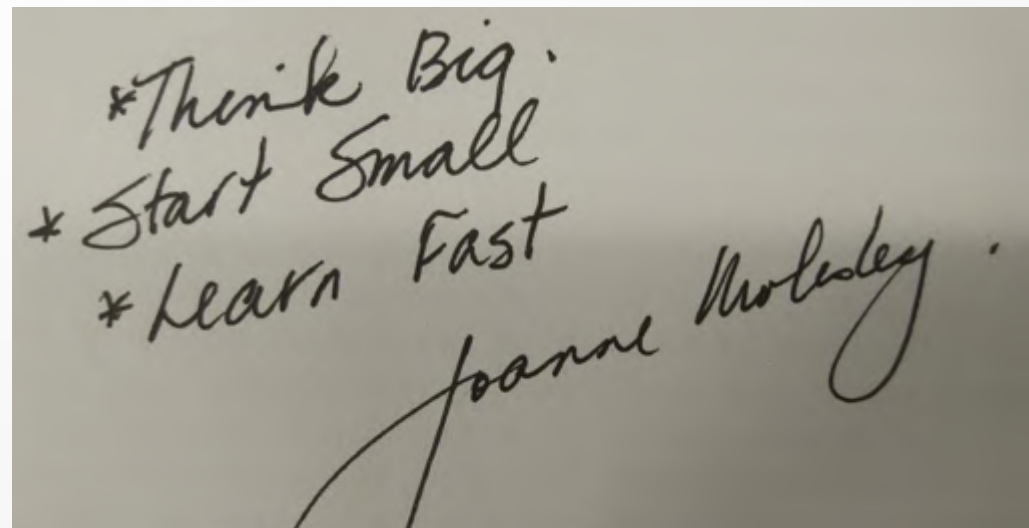 *Think Big.
* Start Small
* Learn Fast
Joanne